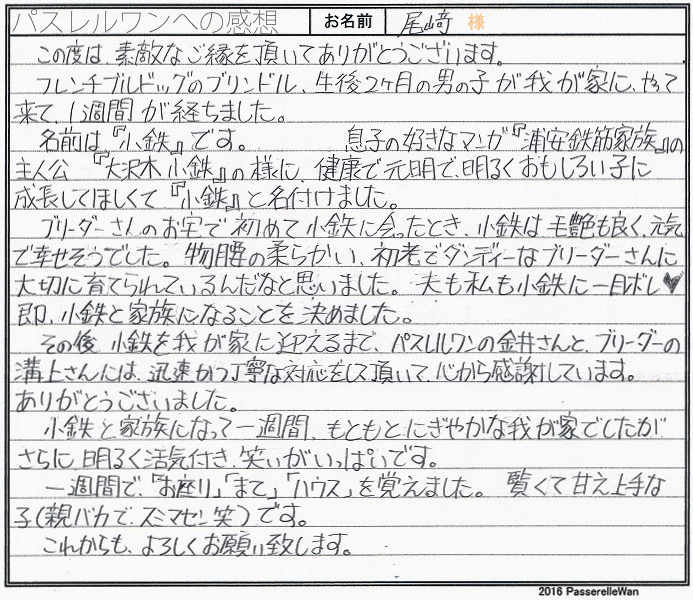 パスレルワンへの感想 お名前 尾﨑 様
この度は、素敵なご縁を頂いてありがとうございます。
フレンチブルドッグのブリンドル、生後2ヶ月の男の子が我が家に、やって
来て、1週間が経ちました。
名前は、『小鉄』です。 息子の好きなマンガ『浦安鉄筋家族』の
主人公 『大沢木小鉄』の様に、健康で元明で、明るくおもしろい子に
成長してほしくて『小鉄』と名付けました。
ブリーダーさんのお宅で初めて小鉄に会ったとき、小鉄は毛艶も良く、元気
で幸せそうでした。物腰の柔らかい、初老でダンディーなブリーダーさんに
大切に育てられているんだなと思いました。夫も私も小鉄に一目ボレ♥
即、小鉄と家族になることを決めました。
その後、小鉄を我が家に迎えるまで、パスレルワンの金井さんと、ブリーダーの
溝上さんには、迅速かつ丁寧な対応をして頂いて、心から感謝しています。
ありがとうございました。
小鉄と家族になって一週間、もともとにぎやかな我が家でしたが
さらに明るく活気付き、笑いがいっぱいです。
一週間で、「お座り」「まて」「ハウス」を覚えました。 賢くて甘え上手な
子(親バカで、スミマセン笑)です。
これからも、よろしくお願い致します。
2016 PasserelleWan